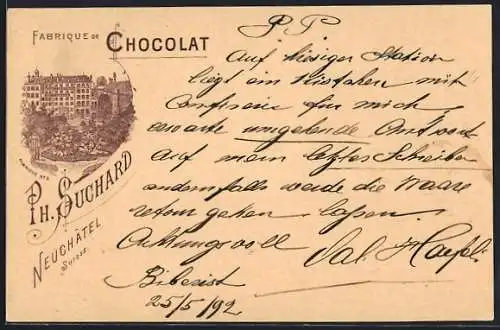 FABRIQUE DE CHOCOLAT
PH. SUCHARD
NEUCHÂTEL
SUISSE
P P
Auf hiesiger Station
liegt ein Kistchen mit
Confiserie für mich
erwarte umgehende Antwort
auf mein letztes Schreiben
andernfalls werde die Waare
retour gehen lassen.
Achtungsvoll
Sal. Haefeli
Biberist
25/5/92